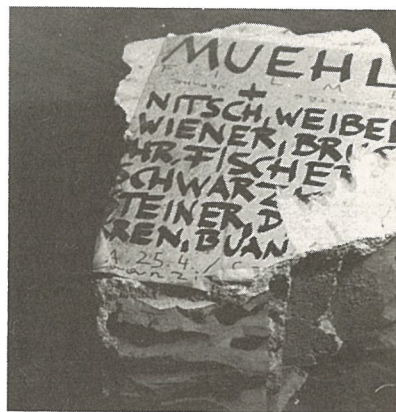 MUEHL
+
NITSCH, WEIBEL
WIENER, BR
HR, FISCHER
SCHWARZ
TEINER, D
REN, BUAN
25.4. /